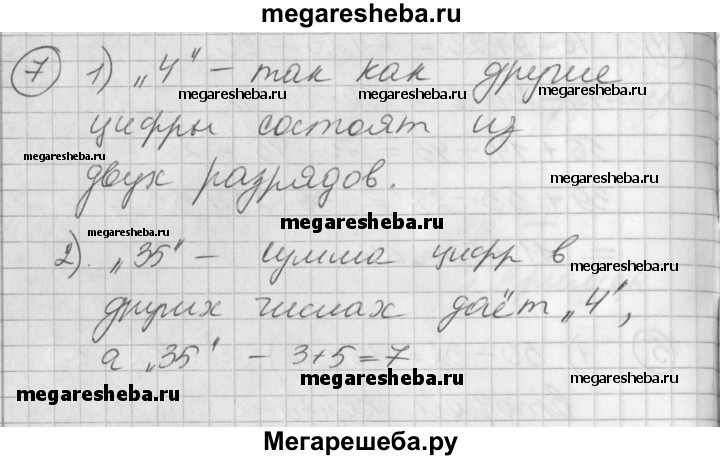 megaresheba.ru
7 1) „4“ – так как другие
megaresheba.ru megaresheba.ru megaresheba.ru
цифры состоят из
megaresheba.ru
двух разрядов.
megaresheba.ru
megaresheba.ru
2). „35“ – сумма цифр в
megaresheba.ru
других числах даёт „4“,
а „35“ – 3+5=7
megaresheba.ru
megaresheba.ru
megaresheba.ru
Мегарешеба.ру